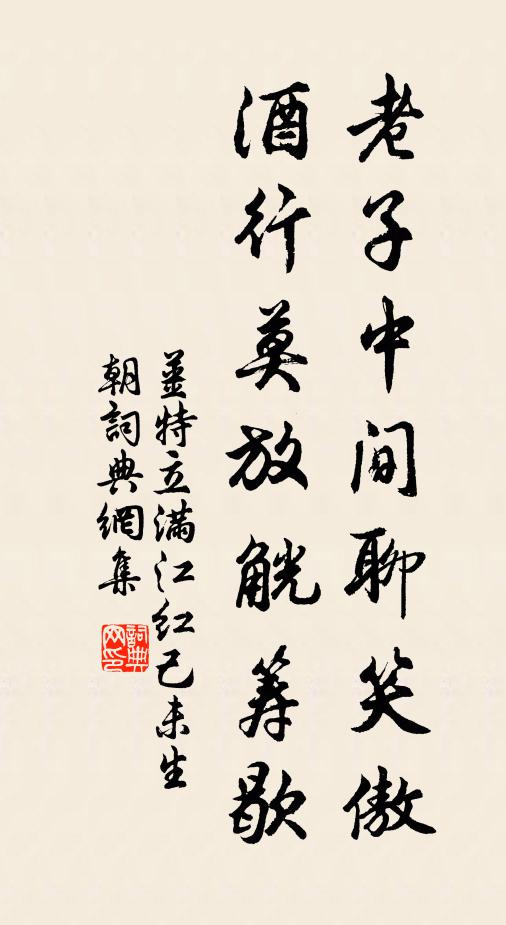 老子中间聊笑傲
酒行莫放觥筹歇
姜特立满江红己未生
朝词典網集
詞典
网印